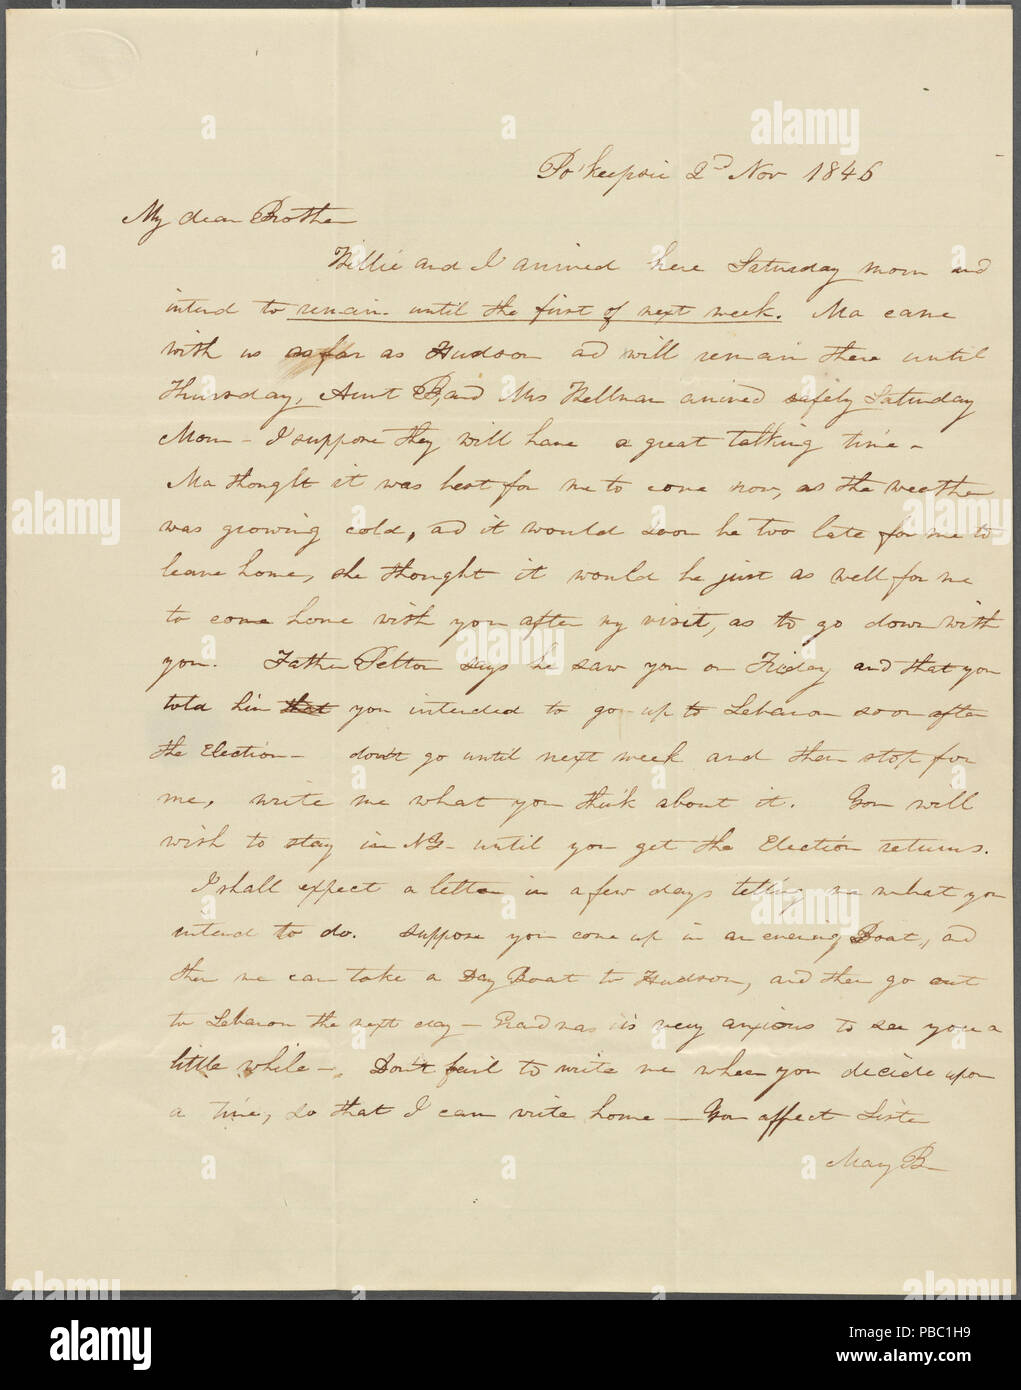 Po'keepsie 2nd Nov 1846
My dear Brother
Willie and I arrived here Saturday morn and
intend to remain until the first of next week. Ma came
with us as far as Hudson and will remain there until
Thursday, Aunt B, and Mrs Wellman arrived safely Saturday
Morn - I suppose they will have a great talking time -
Ma thought it was best for me to come now, as the weather
was growing cold, and it would soon be too late for me to
leave home, she thought it would be just as well for me
to come home with you after my visit, as to go down with
you. Father Pelton says he saw you on Friday and that you
told him that you intended to go up to Lebanon soon after
the Election - don't go until next week and then stop for
me, write me what you think about it. You will
wish to stay in NY - until you get the Election returns.
I shall expect a letter in a few days telling me what you
intend to do. suppose you come up in an evening Boat, and
then we can take a Day Boat to Hudson, and then go out
to Lebanon the next day - Grandmas is very anxious to see you a
little while - Don't fail to write me when you decide upon
a time, so that I can write home - Your affect Sister
Mary B -
alamy
alamy
alamy
alamy
alamy
alamy
alamy
Image ID: PBC1H9
www.alamy.com